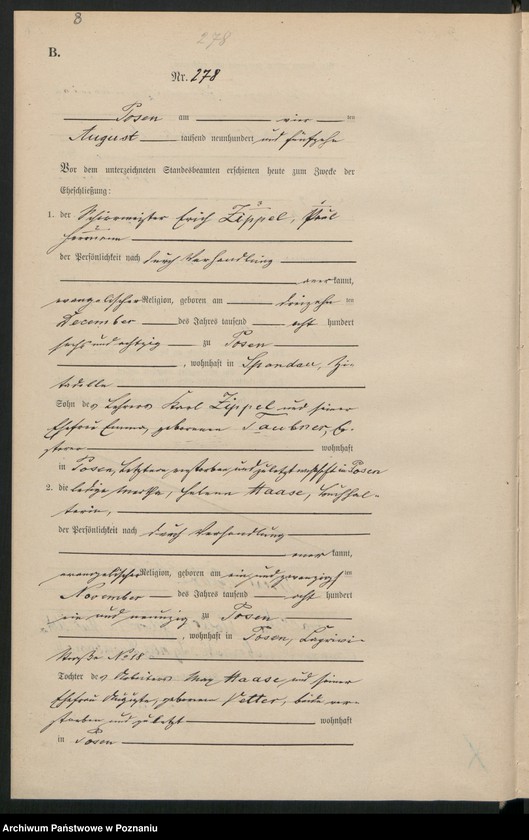 8
278
B.
Nr. 278
Posen am vier ten
August tausend neunhundert und fünfzehn
Vor dem unterzeichneten Standesbeamten erschienen heute zum Zwecke der
Eheschließung:
1. der Schirrmeister Erich Zippel, Paul
Hermann
der Persönlichkeit nach durch Verhandlung
anerkannt,
evangelischer Religion, geboren am dreizehn ten
December des Jahres tausend acht hundert
sechs und achtzig zu Posen
, wohnhaft in Spandau, Zi-
tadelle
Sohn des Lehrers Karl Zippel und seiner
Ehefrau Emma, geborenen Taubner, Er-
sterer wohnhaft
in Posen, Letztere verstorben und zuletzt wohnhaft in Posen
2. die ledige Helene Haase, Buchhal-
terin,
der Persönlichkeit nach durch Verhandlung
anerkannt,
evangelischer Religion, geboren am ein und zwanzigsten
November des Jahres tausend acht hundert
ein und neunzig zu Posen
, wohnhaft in Posen, Caprivi-
straße No 18
Tochter des Arbeiters Max Haase, und seiner
Ehefrau Auguste, geborenen Vetter, beide ver-
storben und zuletzt wohnhaft
in Posen
Archiwum Państwowe w Poznaniu